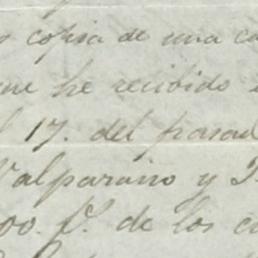 copia de una
que he recibido
17. del pasad
Valparaiso y
00. f.s de los